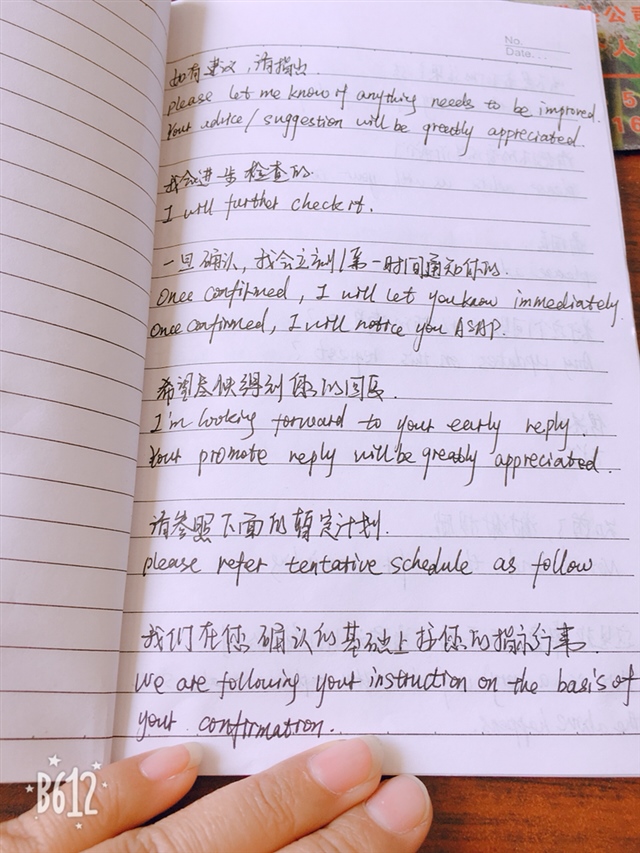 No.
Date...
公司
人
5
16
如有建议，请指出.
please let me know if anything needs to be improved.
Your advice/suggestion will be greatly appreciated.
我会进步检查的.
I will further check it.
一旦确认，我会立刻/第一时间通知你的.
Once confirmed, I will let you know immediately.
Once confirmed, I will notice you ASAP.
希望尽快得到您的回复.
I'm looking forward to your early reply
Your promote reply will be greatly appreciated.
请参照下面的暂定计划.
please refer tentative schedule as follow
我们在您确认的基础上按您的指示行事.
we are following your instruction on the basis of
your confirmation.
B612